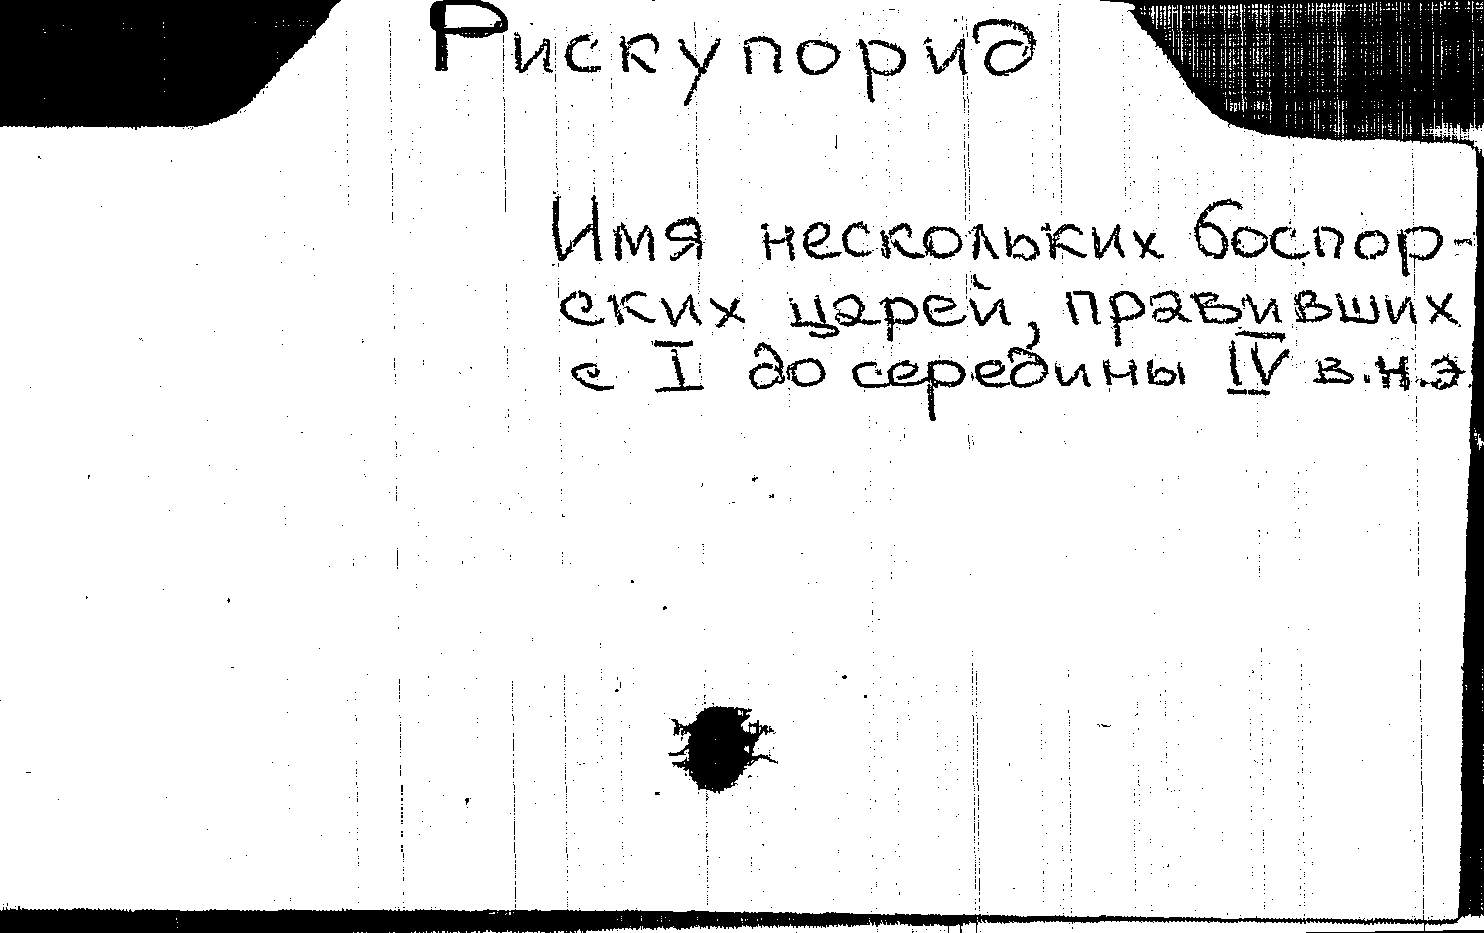 Рискупорид
Имя нескольких боспор-
ских царей, правивших
с I до середины IV в.н.э.